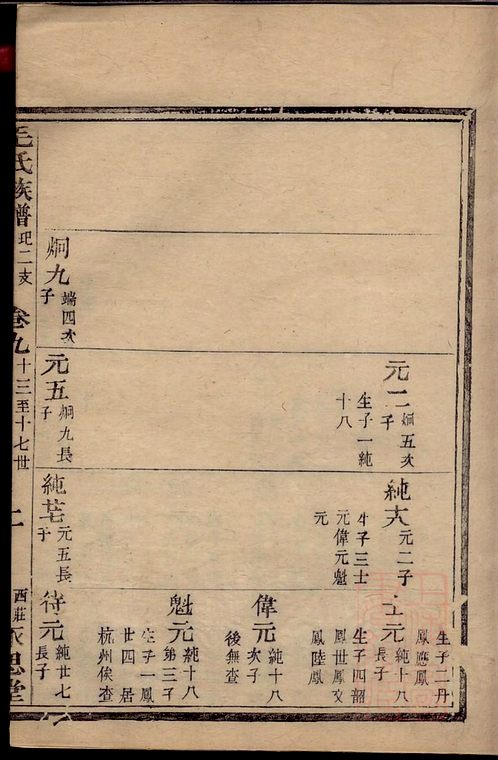 元二 炯五次子
生子一純十八
純 元二子
生子三士元偉元魁元
生子二丹鳳應鳳
士元 純十八長子
生子四韶鳳世鳳文鳳陸鳳
偉元 純十八次子
後無查
魁元 純十八第三子
生子一鳳廿四居杭州俟查
炯九 端四次子
元五 炯九長子
純 元五長子
待元 純廿七長子
毛氏族譜 玘二支 卷九 十三至十七世 二 西莊 永思堂